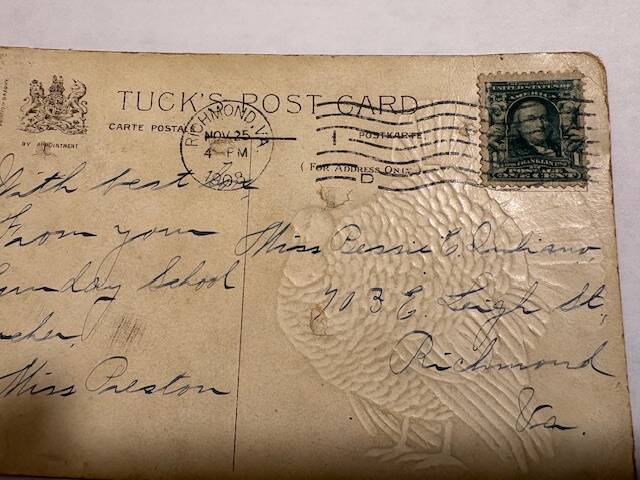 TUCK'S POST CARD
CARTE POSTALE
POSTKARTE
BY APPOINTMENT
(FOR ADDRESS ONLY)
RICHMOND, VA
NOV 25
4 - PM
1908
1
D
UNITED STATES OF
AMERICA
FRANKLIN
POSTAGE
With best
From your
Sunday School
Miss Preston
Miss Bessie E.
703 E. Leigh St,
Richmond,
Va.